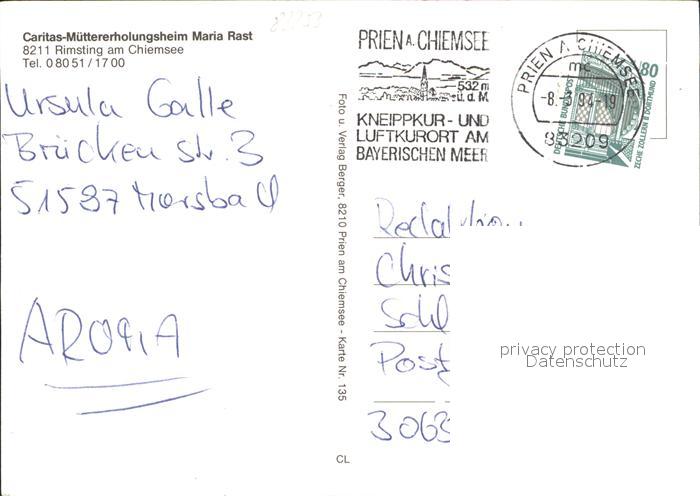 Caritas-Müttererholungsheim Maria Rast
8211 Rimsting am Chiemsee
Tel. 0 80 51 / 17 00
Ursula Galle
Brücken str. 3
51597 Morsbach
AROMA
Foto u. Verlag Berger, 8210 Prien am Chiemsee - Karte Nr. 135
CL
PRIEN A. CHIEMSEE
532 m
ü. d. M.
KNEIPPKUR- UND
LUFTKURORT AM
BAYERISCHEN MEER
PRIEN A CHIEMSEE
mc
-8.-3.94-19
83209
80
DEUTSCHE BUNDESPOST
ZECHE ZOLLERN II DORTMUND
Redaktion
Chris
Schl
Post
3063
privacy protection
Datenschutz